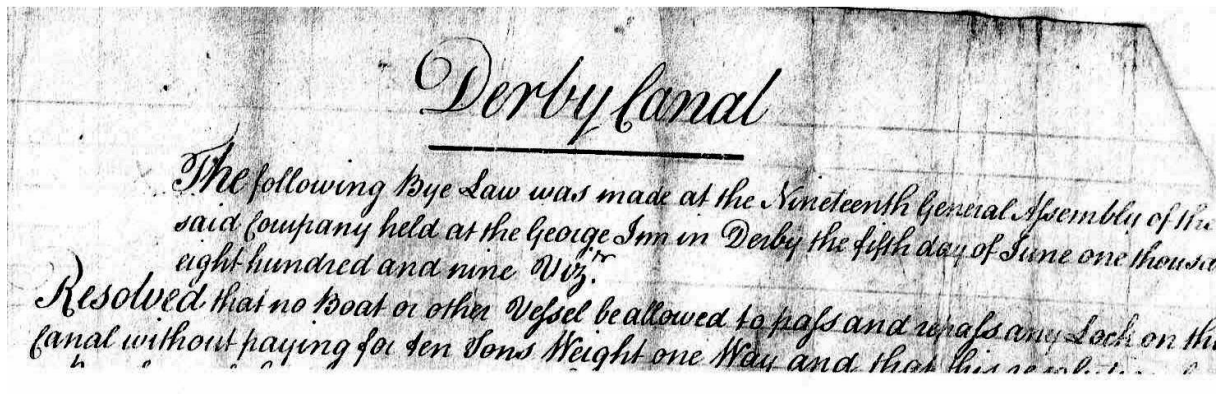 Derby Canal
The following Bye Law was made at the Nineteenth General Aſsembly of the
said Company held at the George Inn in Derby the fifth day of June one thousa
eight hundred and nine Vizt.
Resolved that no Boat or other Veſsel be allowed to paſs and repaſs any Lock on the
Canal without paying for ten Tons Weight one Way and that this